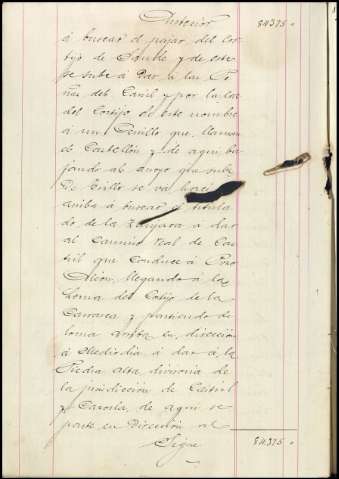 Anterior 84375
á buscar el pajar del Cor
tijo de y de este
se sube á dar á las Pe
ñas del Canil y por la loma
del Cortijo de este nombre
á un Cerrillo que llaman
de Castellon y de aquí ba
jando al arroyo que sube
de Tíscar se va hacia
arriba á buscar el
do de la á dar
al Camino Real de Cas
tril que conduce á Pozo
Alcon, llegando á la
Loma del Cortijo de la
Carrasca y partiendo de
loma arriba en direccion
á Mediodia á dar á la
Piedra alta divisoria de
la jurisdiccion de Castril
y Cazorla, de aquí se
parte en Direccion al
Sigue 84375